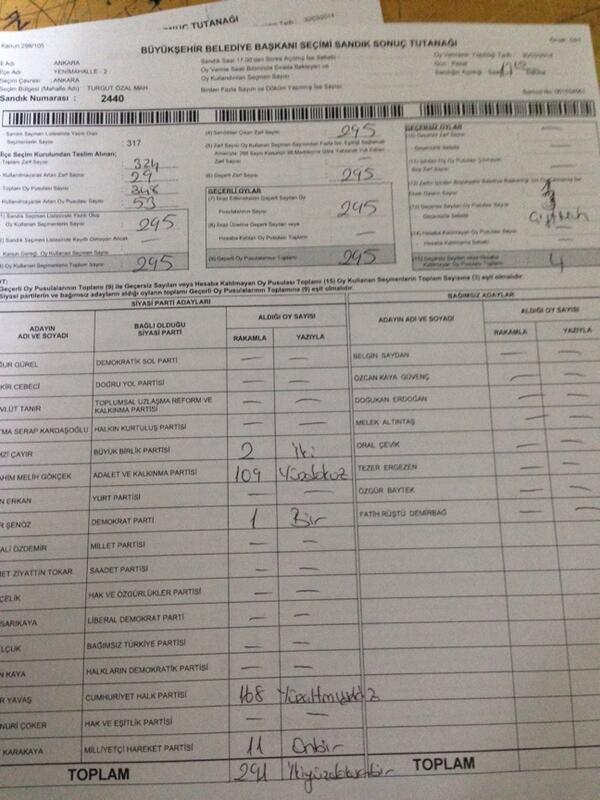 NUÇ TUTANAĞI
30/03/2014
Kanun 298/105
BÜYÜKŞEHİR BELEDİYE BAŞKANI SEÇİMİ SANDIK SONUÇ TUTANAĞI
İl Adı : ANKARA
İlçe Adı : YENİMAHALLE - 2
Seçim Çevresi : ANKARA
Seçim Bölgesi (Mahalle Adı) : TURGUT ÖZAL MAH
Sandık Numarası : 2440
Sandık Saat 17.00'den Sonra Açılmış İse Sebebi
Oy Verme Saat Bitiminde Sırada Bekleyen ve
Oy Kullandırılan Seçmen Sayısı
Birden Fazla Sayım ve Döküm Yapılmış İse Sayısı
- Sandık Seçmen Listesinde Yazılı Olan
Seçmenlerin Sayısı : 317
İlçe Seçim Kurulundan Teslim Alınan;
- Toplam Zarf Sayısı : 324
- Kullanılmayarak Artan Zarf Sayısı : 29
- Toplam Oy Pusulası Sayısı : 348
Kullanılmayarak Artan Oy Pusulası Sayısı : 53
(1) Sandık Seçmen Listesinde Yazılı Olup
Oy Kullanan Seçmenlerin Sayısı 295
(2) Sandık Seçmen Listesinde Kayıtlı Olmayan Ancak
Kanun Gereği, Oy Kullanan Seçmenlerin Sayısı —
(3) Oy Kullanan Seçmenlerin Toplam Sayısı 295
(4) Sandıktan Çıkan Zarf Sayısı 295
Zarf Sayısı —
(6) Geçerli Zarf Sayısı 295
GEÇERLİ OYLAR
(7) İtiraz Edilmeksizin Geçerli Sayılan Oy
Pusulalarının Sayısı 295
(8) İtiraz Üzerine Geçerli Sayılan veya
Hesaba Katılan Oy Pusulası Toplamı —
(9) Geçerli Oy Pusulalarının Toplamı 295
GEÇERSİZ OYLAR
Boş Zarf Sayısı
Hesaba Katılmama Sebebi
4
Geçerli Oy Pusulalarının Toplamı (9) ile Geçersiz Sayılan veya Hesaba Katılmayan Oy Pusulası Toplamı (15) Oy Kullanan Seçmenlerin Toplam Sayısına (3) eşit olmalıdır.
Siyasi partilerin ve bağımsız adayların aldığı oyların toplamı Geçerli Oy Pusulalarının Toplamına (9) eşit olmalıdır.
SİYASİ PARTİ ADAYLARI
BAĞIMSIZ ADAYLAR
ADAYIN ADI VE SOYADI
BAĞLI OLDUĞU SİYASİ PARTİ
ALDIĞI OY SAYISI
RAKAMLA YAZIYLA
ADAYIN ADI VE SOYADI
ALDIĞI OY SAYISI
RAKAMLA YAZIYLA
ĞUR GÜREL DEMOKRATİK SOL PARTİ — — BELGİN SAYDAN — —
KİR CEBECİ DOĞRU YOL PARTİSİ — — ÖZCAN KAYA GÜVENÇ — —
VLÜT TANIR TOPLUMSAL UZLAŞMA REFORM VE KALKINMA PARTİSİ — — DOĞUKAN ERDOĞAN — —
TMA SERAP KARDAŞOĞLU HALKIN KURTULUŞ PARTİSİ — — MELEK ALTINTAŞ — —
MZİ ÇAYIR BÜYÜK BİRLİK PARTİSİ 2 İki ORAL ÇEVİK — —
AHİM MELİH GÖKÇEK ADALET VE KALKINMA PARTİSİ 109 Yüzdokuz TEZER ERGEZEN — —
N ERKAN YURT PARTİSİ — — ÖZGÜR BAYTEK — —
R ŞENÖZ DEMOKRAT PARTİ 1 Bir FATİH RÜŞTÜ DEMİRBAĞ — —
ALİ ÖZDEMİR MİLLET PARTİSİ — —
ET ZİYATTİN TOKAR SAADET PARTİSİ — —
ÇELİK HAK VE ÖZGÜRLÜKLER PARTİSİ — —
SARIKAYA LİBERAL DEMOKRAT PARTİ — —
LÇUK BAĞIMSIZ TÜRKİYE PARTİSİ — —
N KAYA HALKLARIN DEMOKRATİK PARTİSİ — —
R YAVAŞ CUMHURİYET HALK PARTİSİ 168
NURİ ÇOKER HAK VE EŞİTLİK PARTİSİ — —
KARAKAYA MİLLİYETÇİ HAREKET PARTİSİ 11 Onbir
TOPLAM 291 İkiyüzdoksanbir TOPLAM